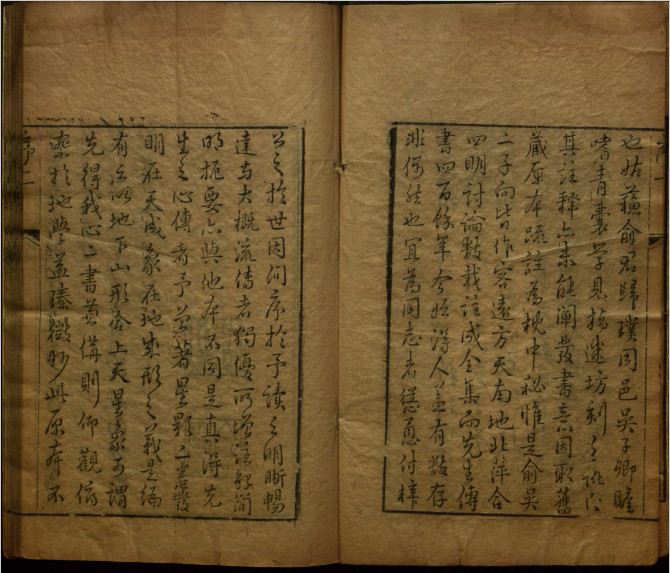 也姑蘇俞君歸璞同邑吳子卿瞻
嗜青囊學見指迷坊刻多訛following
其註釋亦未能闡發書意因取舊
藏原本疏註為枕中秘惟是俞吳
二子向皆作客遠方天南地北萍合
四明討論數載註成全集而先生傳
書四百餘年今始得人蓋有數存
非偶然也宜為同志者慫恿付梓
公之於世因問序於予讀之明晰暢
達與大概流傳者獨優所增註能簡
明扼要亦與他本不同是真得先
生之心傳者予曾著星顆二卷發
明在天成象在地成形之義是編
有法以地下山形合上天星象可謂
先得我心二書並備則仰觀俯
察於地學益臻微妙此原本不
序二